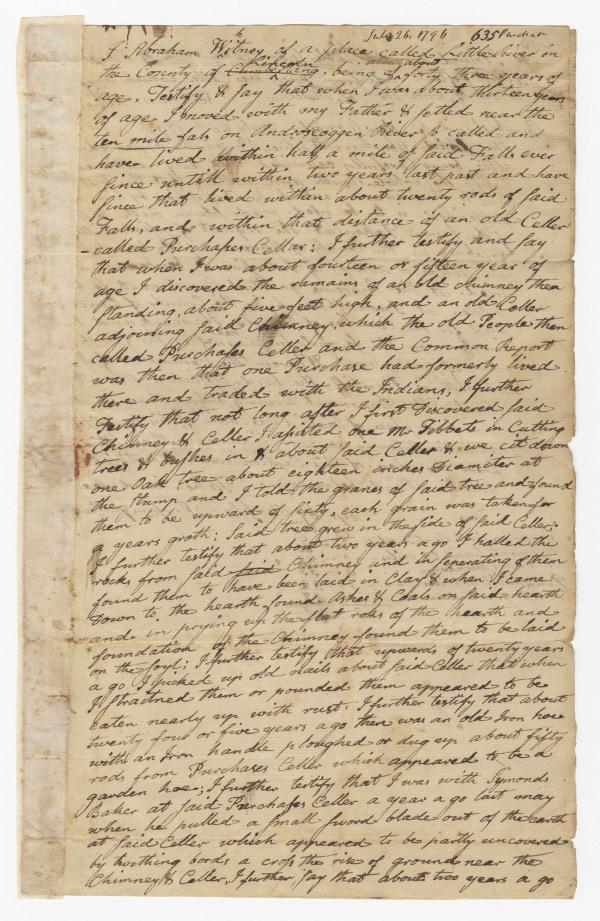 July 26. 1796 6351
I Abraham Witney of a place called Little River in
the County of Cumberland Lincoln, being about forty three years of
age, Testify & say that when I was about thirteen years
of age I moved with my Father & setled near the
ten mile fals on Androscoggen River so called and
have lived within half a mile of said Falls ever
since untill within two years last past and have
since that lived within about twenty rods of said
Falls, and within that distance of an old Celler
called Purchases Cellar: I further testify and say
that when I was about fourteen or fifteen year of
age I discovered the ramains of an old chimney then
standing, about five feet high, and an old Celler
adjoining said Chimney, which the old People then
called Purchases Celler and the Common Report
was then that one Purchase had formerly lived
there and traded with the Indians, I further
Testify that not long after I first Discovered said
Chimney & Celler I assisted one Mr Tibbets in Cutting
trees & bushes in & about said Celler & we cit down
one Oak tree about eighteen inches Diamiter at
the stump and I told the granes of said tree and found
them to be upward of sixty, each grain was taken for
a years groth: said tree grew in the side of said Celler:
I further testify that about two years ago I halled the
rocks from said said Chimney and in seperating of them
found them to have been laid in Clay & when I came
Down to the hearth found Ashes & Coals on said hearth
and in prying up the flat roks of the hearth and
foundation of the Chimney found them to be laid
on the soyl; I further testify that upwards of twenty years
a go I picked up old nails about said Celler that when
I straitned them or pounded them appeared to be
eaten nearly up with rust. I further testify that about
twenty four or five years ago there was an old Iron hoe
with an Iron handle ploughed or dug up about fifty
rods from Purchases Celler which appeared to be a
garden hoe; I further testify that I was with Symonds
Baker at said Purchases Celler a year a go last may
when he pulled a small sword blade out of the earth
at said Celler which appeared to be partly uncovered
by histhing bords a cross the rise of ground near the
Chimney & Celler, I further say that about two years a go